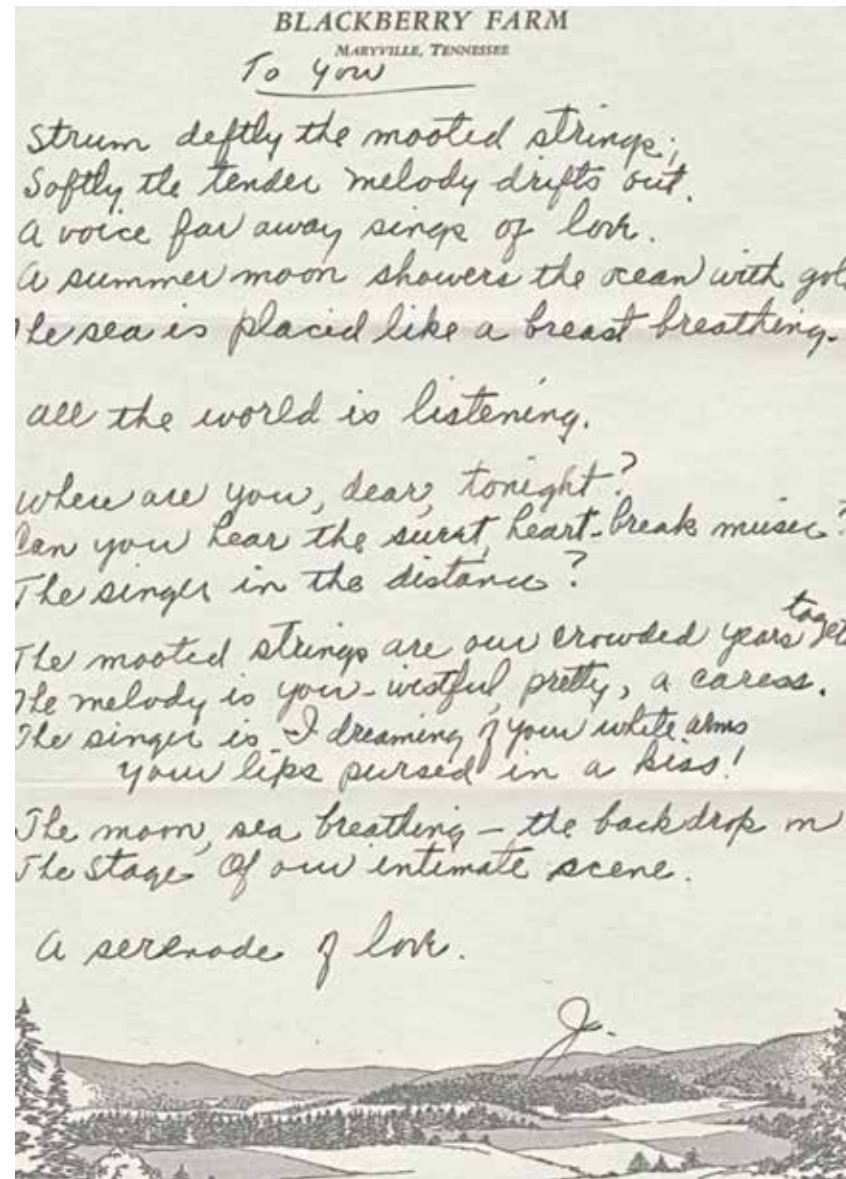 BLACKBERRY FARM
MARYVILLE, TENNESSEE
To You
Strum deftly the mooted strings;
Softly the tender melody drifts out.
A voice far away sings of love.
A summer moon showers the ocean with gol
The sea is placid like a breast breathing.
All the world is listening.
Where are you, dear, tonight?
Can you hear the sweet, heart-break music?
The singer in the distance?
The mooted strings are our crowded years toget
The melody is you - wistful, pretty, a caress.
The singer is I dreaming of your white arms
your lips pursed in a kiss!
The moon, sea breathing – the backdrop on
The stage of our intimate scene.
A serenade of love.
J.